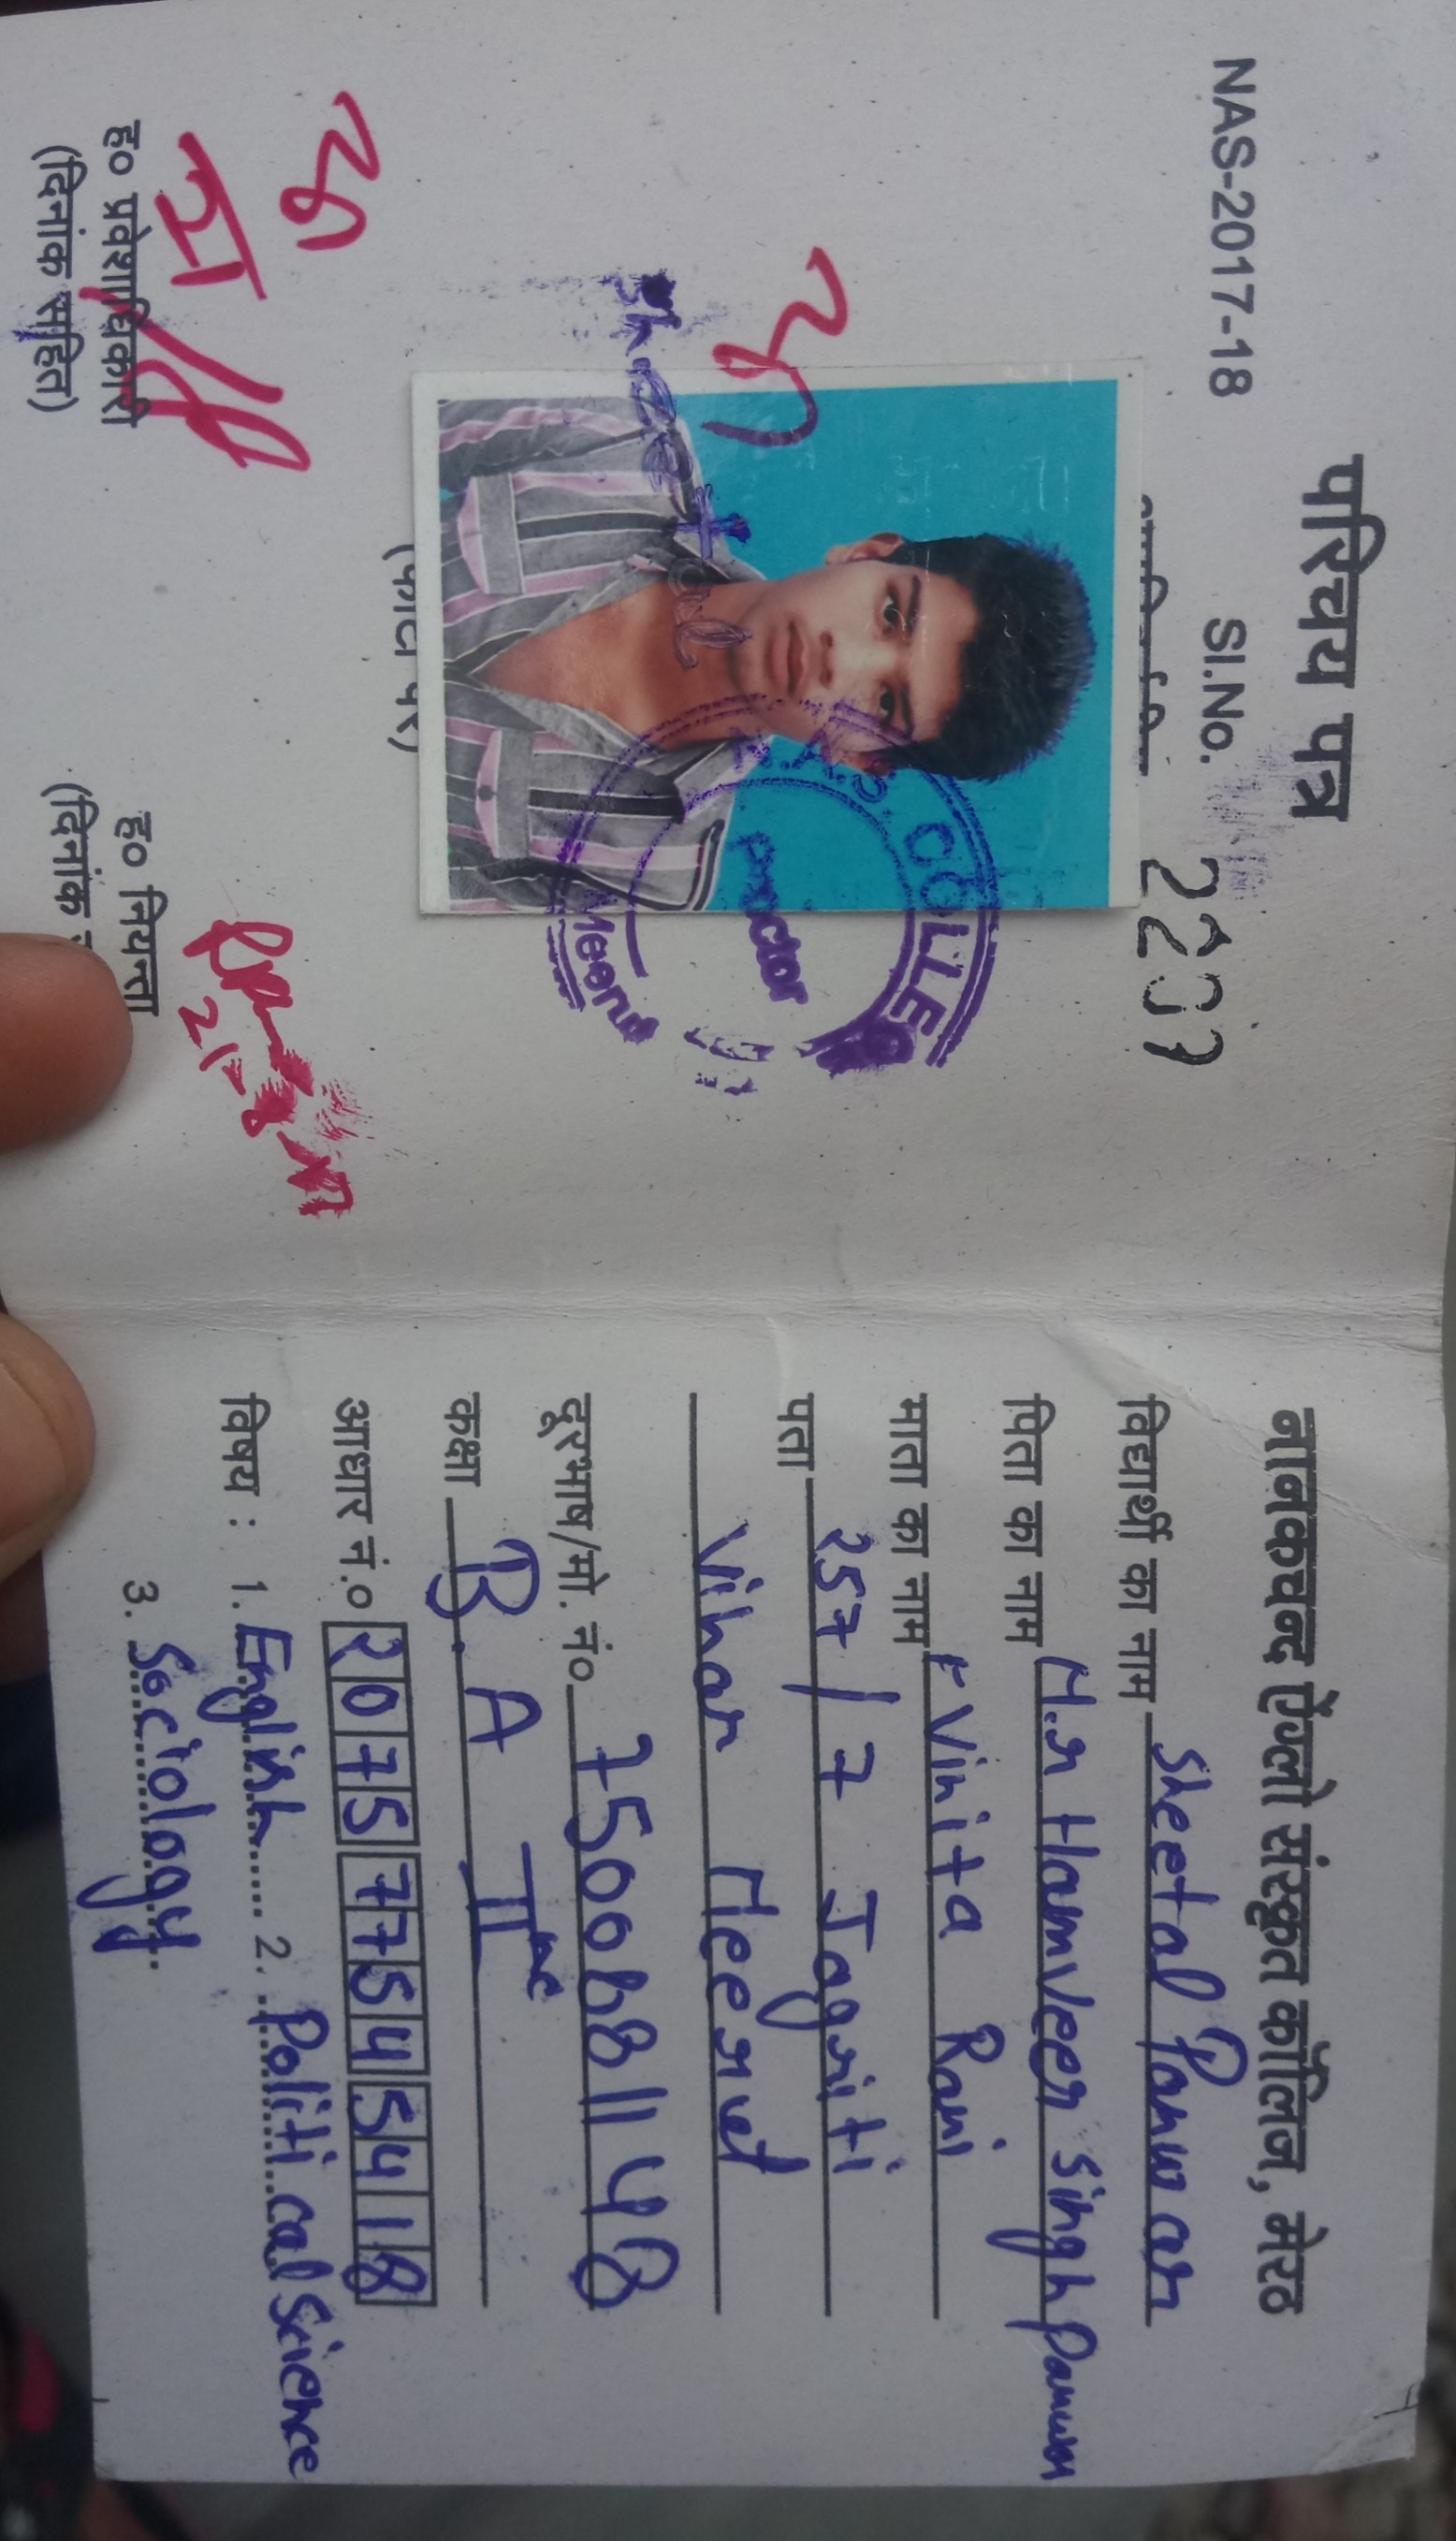 परिचय पत्र
NAS-2017-18 Sl.No. 2237
Sheetal
N.A.S. COLLEGE
Proctor
Meerut
ह० प्रवेशाधिकारी
(दिनांक सहित)
ह० नियन्ता
(दिनांक
नानकचन्द ऐंग्लो संस्कृत कॉलिज, मेरठ
विद्यार्थी का नाम Sheetal Panwar
पिता का नाम Mr Hamveer Singh Panwar
माता का नाम Vinita Rani
पता 257/7 Jagriti
Vihar Meerut
दूरभाष/मो. नं० 7500681148
कक्षा B.A II
आधार नं.० 207577545418
विषय : 1. English 2. Political Science
3. Sociology